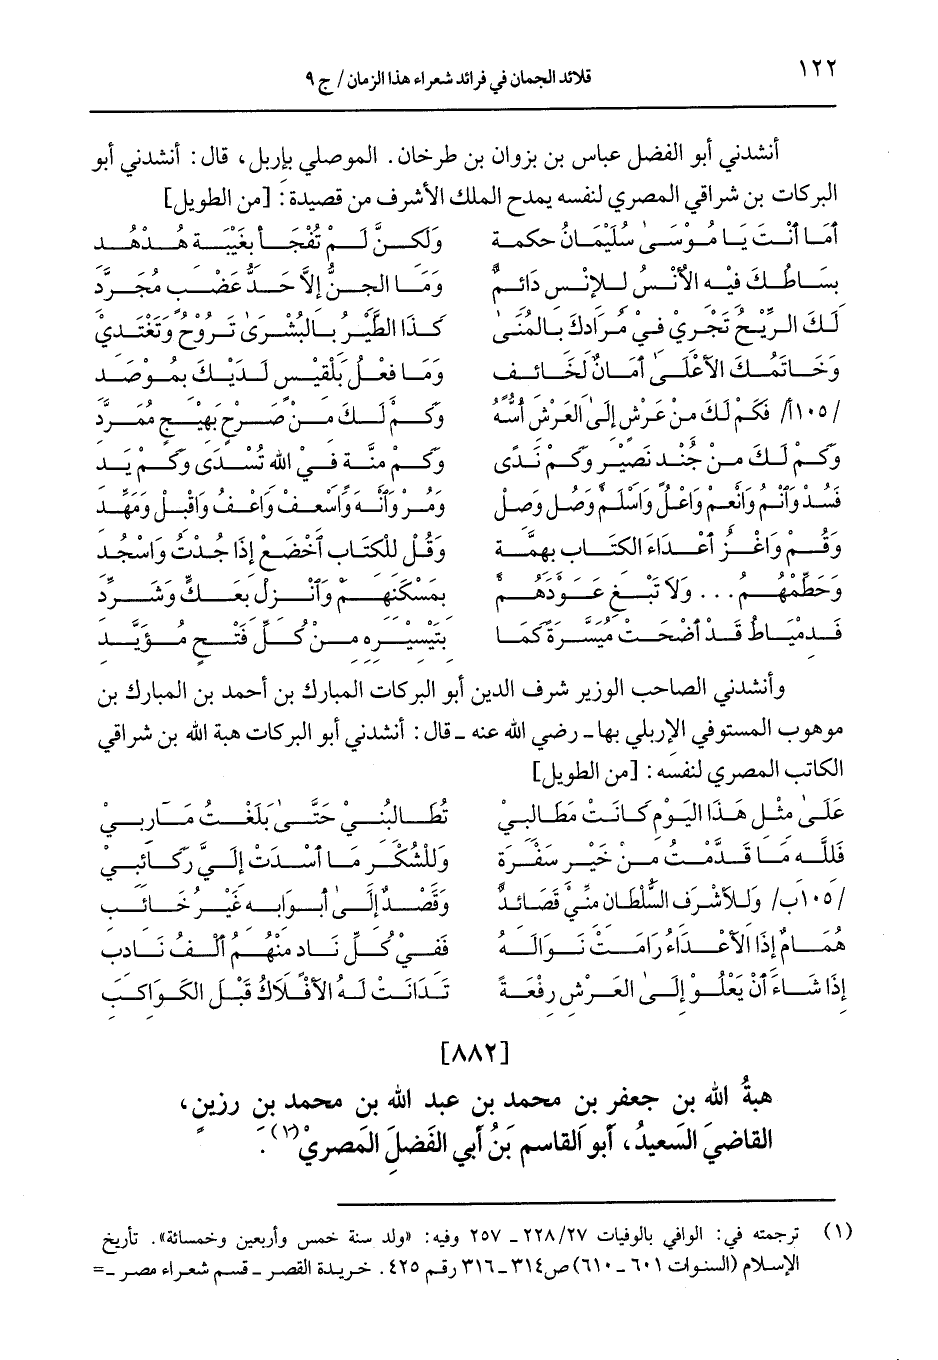 ١٢٢
قلائد الجمان في فرائد شعراء هذا الزمان/ ج ٩
أنشدني أبو الفضل عباس بن بزوان بن طرخان. الموصلي بإربل، قال: أنشدني أبو
البركات بن شراقي المصري لنفسه يمدح الملك الأشرف من قصيدة: [من الطويل]
أمَا أنْتَ يَا مُوسَى سُلَيْمَانُ حكمَة ولكنَّ لَمْ تُفْجَأ بغَيْبَة هُدْهُد
بسَاطُكَ فيْه الأنْسُ للإنْس دَائمٌ وَمَا الجنُّ إلاَّ حَدُّ عَضْب مُجَرَّد
لَكَ الرِّيْحُ تَجْريْ فيْ مُرَادكَ بالمُنَىٰ كَذَا الطَّيْرُ بالبُشْرَى تَرُوْحُ وَتَغْتَديْ
وَخَاتمُكَ الأعْلَىٰ أمَانٌ لخَائف وَمَا فعْلُ بَلْقيْس لَدَيْكَ بمُوْصَد
/١٠٥أ/ فَكَمْ لَكَ منْ عَرْش إلىٰ العَرْش أُسُّهُ وَكَمْ لَكَ منْ صَرْح بَهيْج مُمَرَّد
وَكَمْ لَكَ منْ جُنْد نَصيْر وكَمْ نَدًى وَكَمْ منَّة فيْ الله تُسْدَى وكَمْ يَد
فَسُدْ وَٱنْمُ وَٱنْعمْ وَاعْلُ وَاسْلَمْ وَصُلْ وَصلْ وَمُرْ وَٱنْهَ وَٱسْعفْ وَاعْفُ وَاقْبلْ وَمَهِّد
وَقُمْ وَاغْزُ أعْدَاءَ الكتَاب بهمَّة وَقُلْ للكتَاب اخْضَعْ إذَا جُدْتُ وَاسْجُد
وَحَطِّمْهُمُ... ولاَ تَبْغ عَوْدَهُمْ بمَسْكَنهمْ وَٱنْزلْ بعَكَّ وَشَرِّد
فَدمْيَاطُ قَدْ أضْحَتْ مُيَسَّرَةً كَمَا بتَيْسيْره منْ كُلِّ فَتْح مُؤَيَّد
وأنشدني الصاحب الوزير شرف الدين أبو البركات المبارك بن أحمد بن المبارك بن
موهوب المستوفي الإربلي بها ـ رضي الله عنه ـ قال: أنشدني أبو البركات هبة الله بن شراقي
الكاتب المصري لنفسه: [من الطويل]
عَلَىٰ مثْل هَذَا اليَوْم كَانَتْ مَطَالبيْ تُطَالبُنيْ حَتَّىٰ بَلَغْتُ مَآربيْ
فَللَّه مَا قَدَّمْتُ منْ خَيْر سَفْرَة وَللْشُّكْر مَا أسْدَتْ إليَّ رَكَائبيْ
/١٠٥ب/ وَللأشْرَف السُّلْطَان منِّيْ قَصَائدٌ وَقَصْدٌ إلَىٰ أبْوَابه غَيْرُ خَائب
هُمَامٌ إذَا الأعْدَاءُ رَامَتْ نزَالَهُ فَفيْ كُلِّ نَاد منْهُمُ ألْفُ نَادب
إذَا شَاءَ أنْ يَعْلُوْ إلَىٰ العَرْش رفْعَةً تَدَانَتْ لَهُ الأفْلاَكُ قَبْلَ الكَوَاكب
[٨٨٢]
هبةُ الله بن جعفر بن محمد بن عبد الله بن محمد بن رزين،
القاضي السَّعيدُ، أبو القاسم بنُ أبي الفَضْل المصْريْ(١).
(١) ترجمته في: الوافي بالوفيات ٢٢٨/٢٧ ـ ٢٥٧ وفيه: «ولد سنة خمس وأربعين وخمسائة». تأريخ
الإسلام (السنوات ٦٠١ ـ ٦١٠) ص٣١٤ ـ ٣١٦ رقم ٤٢٥. خريدة القصر ـ قسم شعراء مصر ـ =